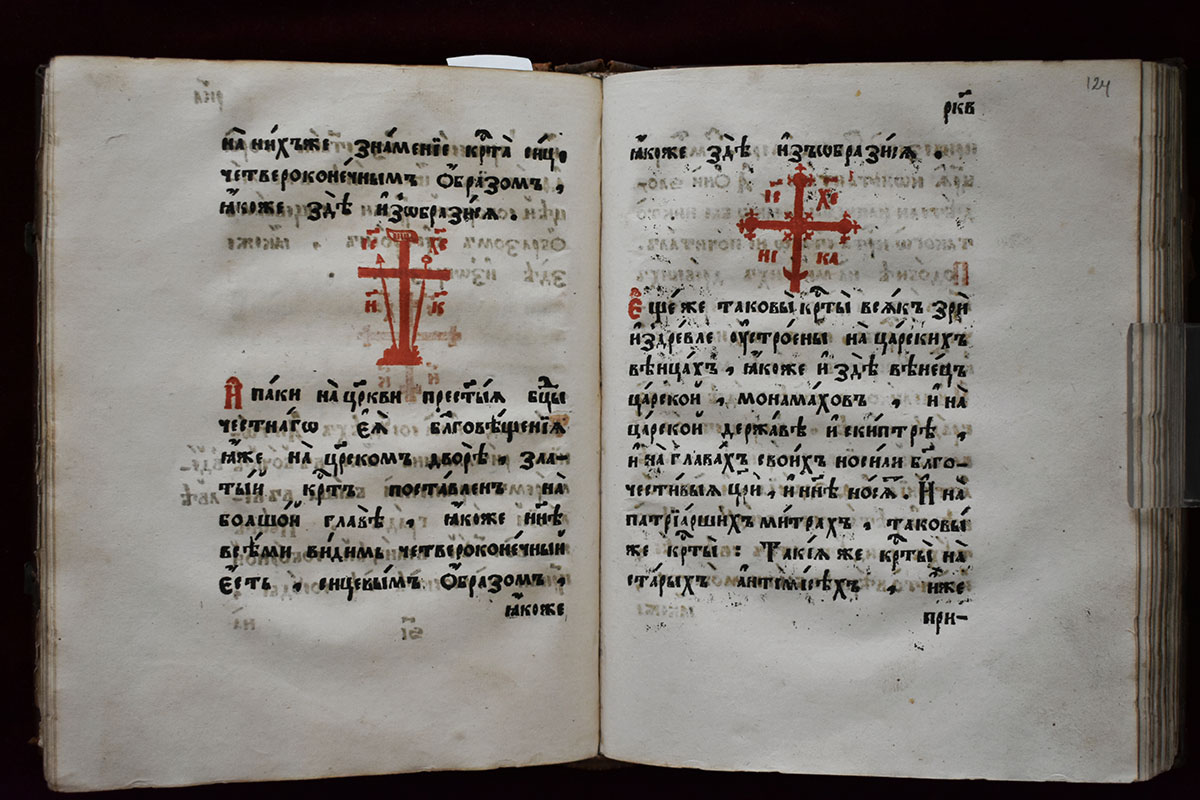 на ни́хъже зна́менїе кр҇та̀ сицⷪ
четвероконе́чнымъ ѻ҆́бразомъ,
ꙗ҆́коже здѣ̀ и҆зѡбрази́сѧ.
І҆С ХС
Н К
А҆ па́ки на цр҃кви прест҃ы́ѧ бц҃ы
честна́гѡ є҆ѧ̀ бл҃говѣ́щенїѧ
ꙗ҆́же на цр҇комъ дворѣ̀, зла-
ты́й кр҇тъ поста́вленъ на
болшо́й главѣ̀, ꙗ҆́коже нн҃ѣ
всѣ́ми ви́димь четвероконе́чный
є҆́сть, сицевы́мъ ѻ҆́бразомъ,
ꙗ҆́коже
124
рк҃в
ꙗ҆́коже здѣ̀ и҆зъѡбрази́сѧ.
І҆С ХС
НИ КА
Є҆ще́ же таковы̀ кр҇ты̀ всѧ́къ зрѝ
и҆здре́вле ᲂу҆стро́ены на ца́рскихъ
вѣнца́хъ, ꙗ҆́коже и҆ здѣ̀ вѣне́цъ
ца́рской, мономаховъ, и҆ на
ца́рской держа́вѣ и҆ ски́птрѣ,
и҆ на глава́хъ свои́хъ носи́ли бл҃го-
чести́выѧ цр҃и́, и҆ нн҃ѣ но́сѧт. И҆ на
патрїа́ршихъ ми́трахъ, таковы́
же кр҇ты̀: Такі́ѧ же кр҇ты̀ на
ста́рыхъ а҆нтемі́сѣхъ, и҆̀же
при-